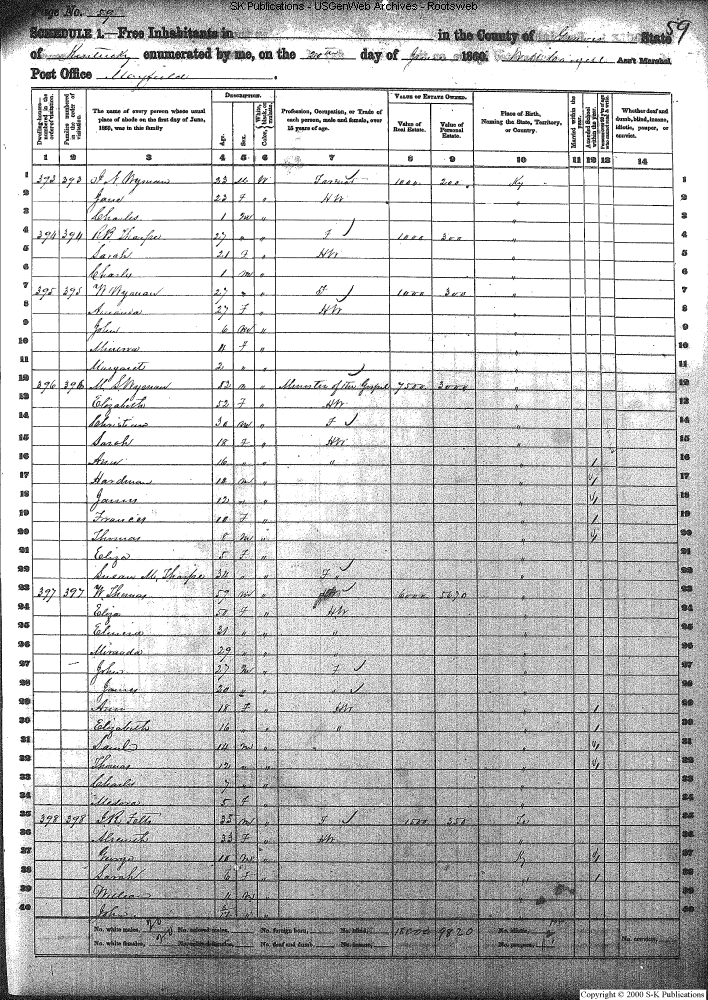 SK Publications - USGenWeb Archives - Rootsweb
Page No. 59
59
SCHEDULE 1.—Free Inhabitants in in the County of Graves State
of Kentucky enumerated by me, on the 20th day of June 1860. Ass't Marshal.
Post Office Mayfield.
Dwelling-houses—numbered in the order of visitation.
Families numbered in the order of visitation.
The name of every person whose usual place of abode on the first day of June, 1860, was in this family
DESCRIPTION.
Age.
Sex.
Color, White, black, or mulatto.
Profession, Occupation, or Trade of each person, male and female, over 15 years of age.
VALUE OF ESTATE OWNED.
Value of Real Estate.
Value of Personal Estate.
Place of Birth, Naming the State, Territory, or Country.
Married within the year.
Attended School within the year.
Whether deaf and dumb, blind, insane, idiotic, pauper, or convict.
1 2 3 4 5 6 7 8 9 10 11 12 13 14
1 393 393 Wyman 23 M W Farmer 1000 200 Ky 1
2 Jane 23 F " HW " 2
3 Charles 1 M " " 3
4 394 394 R B Tharpe 27 " " F 1000 300 " 4
5 Sarah 21 F " HW " 5
6 Charles 1 M " " 6
7 395 395 W Wyman 27 " " F 1000 300 " 7
8 Amanda 27 F " HW " 8
9 John 6 M " " 9
10 Minerva 4 F " " 10
11 Margaret 2 " " " 11
12 396 396 M S Wyman 52 M " Minister of the Gospel 7500 3000 " 12
13 Elizabeth 52 F " HW " 13
14 30 M " F " 14
15 Sarah 18 F " HW " 15
16 Ann 16 " " " " 1 16
17 Hardman M " " 1 17
18 James 12 " " " 1 18
19 Frances 10 F " " 1 19
20 Thomas 8 M " " 1 20
21 Eliza 5 F " " 21
22 Susan M. Tharpe 34 " " F " 22
23 397 397 W. Thomas 57 M " 6000 5670 " 23
24 Eliza 50 F " HW " 24
25 Elmira 31 " " " " 25
26 Miranda 29 " " " 26
27 John 27 M " F " 27
28 James 20 " " " " 28
29 Ann 18 F " HW " 1 29
30 Elizabeth 16 " " " " 1 30
31 Saml 14 M " " 1 31
32 Thomas 12 " " " 1 32
33 Charles 7 " " " 33
34 Medora 5 F " " 34
35 398 398 Felts 35 M " F 1500 350 Te 35
36 33 F " HW " 36
37 George 10 M " Ky 1 37
38 Sarah 6 F " " 1 38
39 William 4 M " " 39
40 John " " " 40
No. white males, 20 No. colored males, No. foreign born, No. blind, 18000 9820 No. idiotic,
No. white females, 20 No. colored females, No. deaf and dumb, No. insane, No. paupers, No. convicts,
Copyright © 2000 S-K Publications